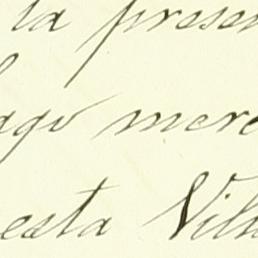 la presen
ago mere
esta Vill